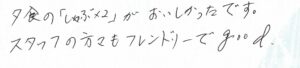 夕食の「しゃぶ×2」が おいしかったです。
スタッフの方々もフレンドリーで good.